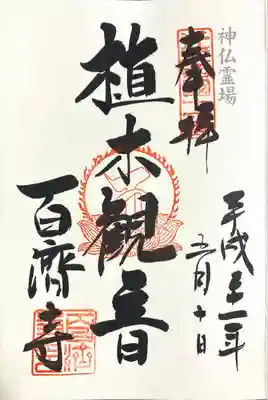 神仏霊場
奉拝
平成二十一年
五月十日
植木観音
百濟寺